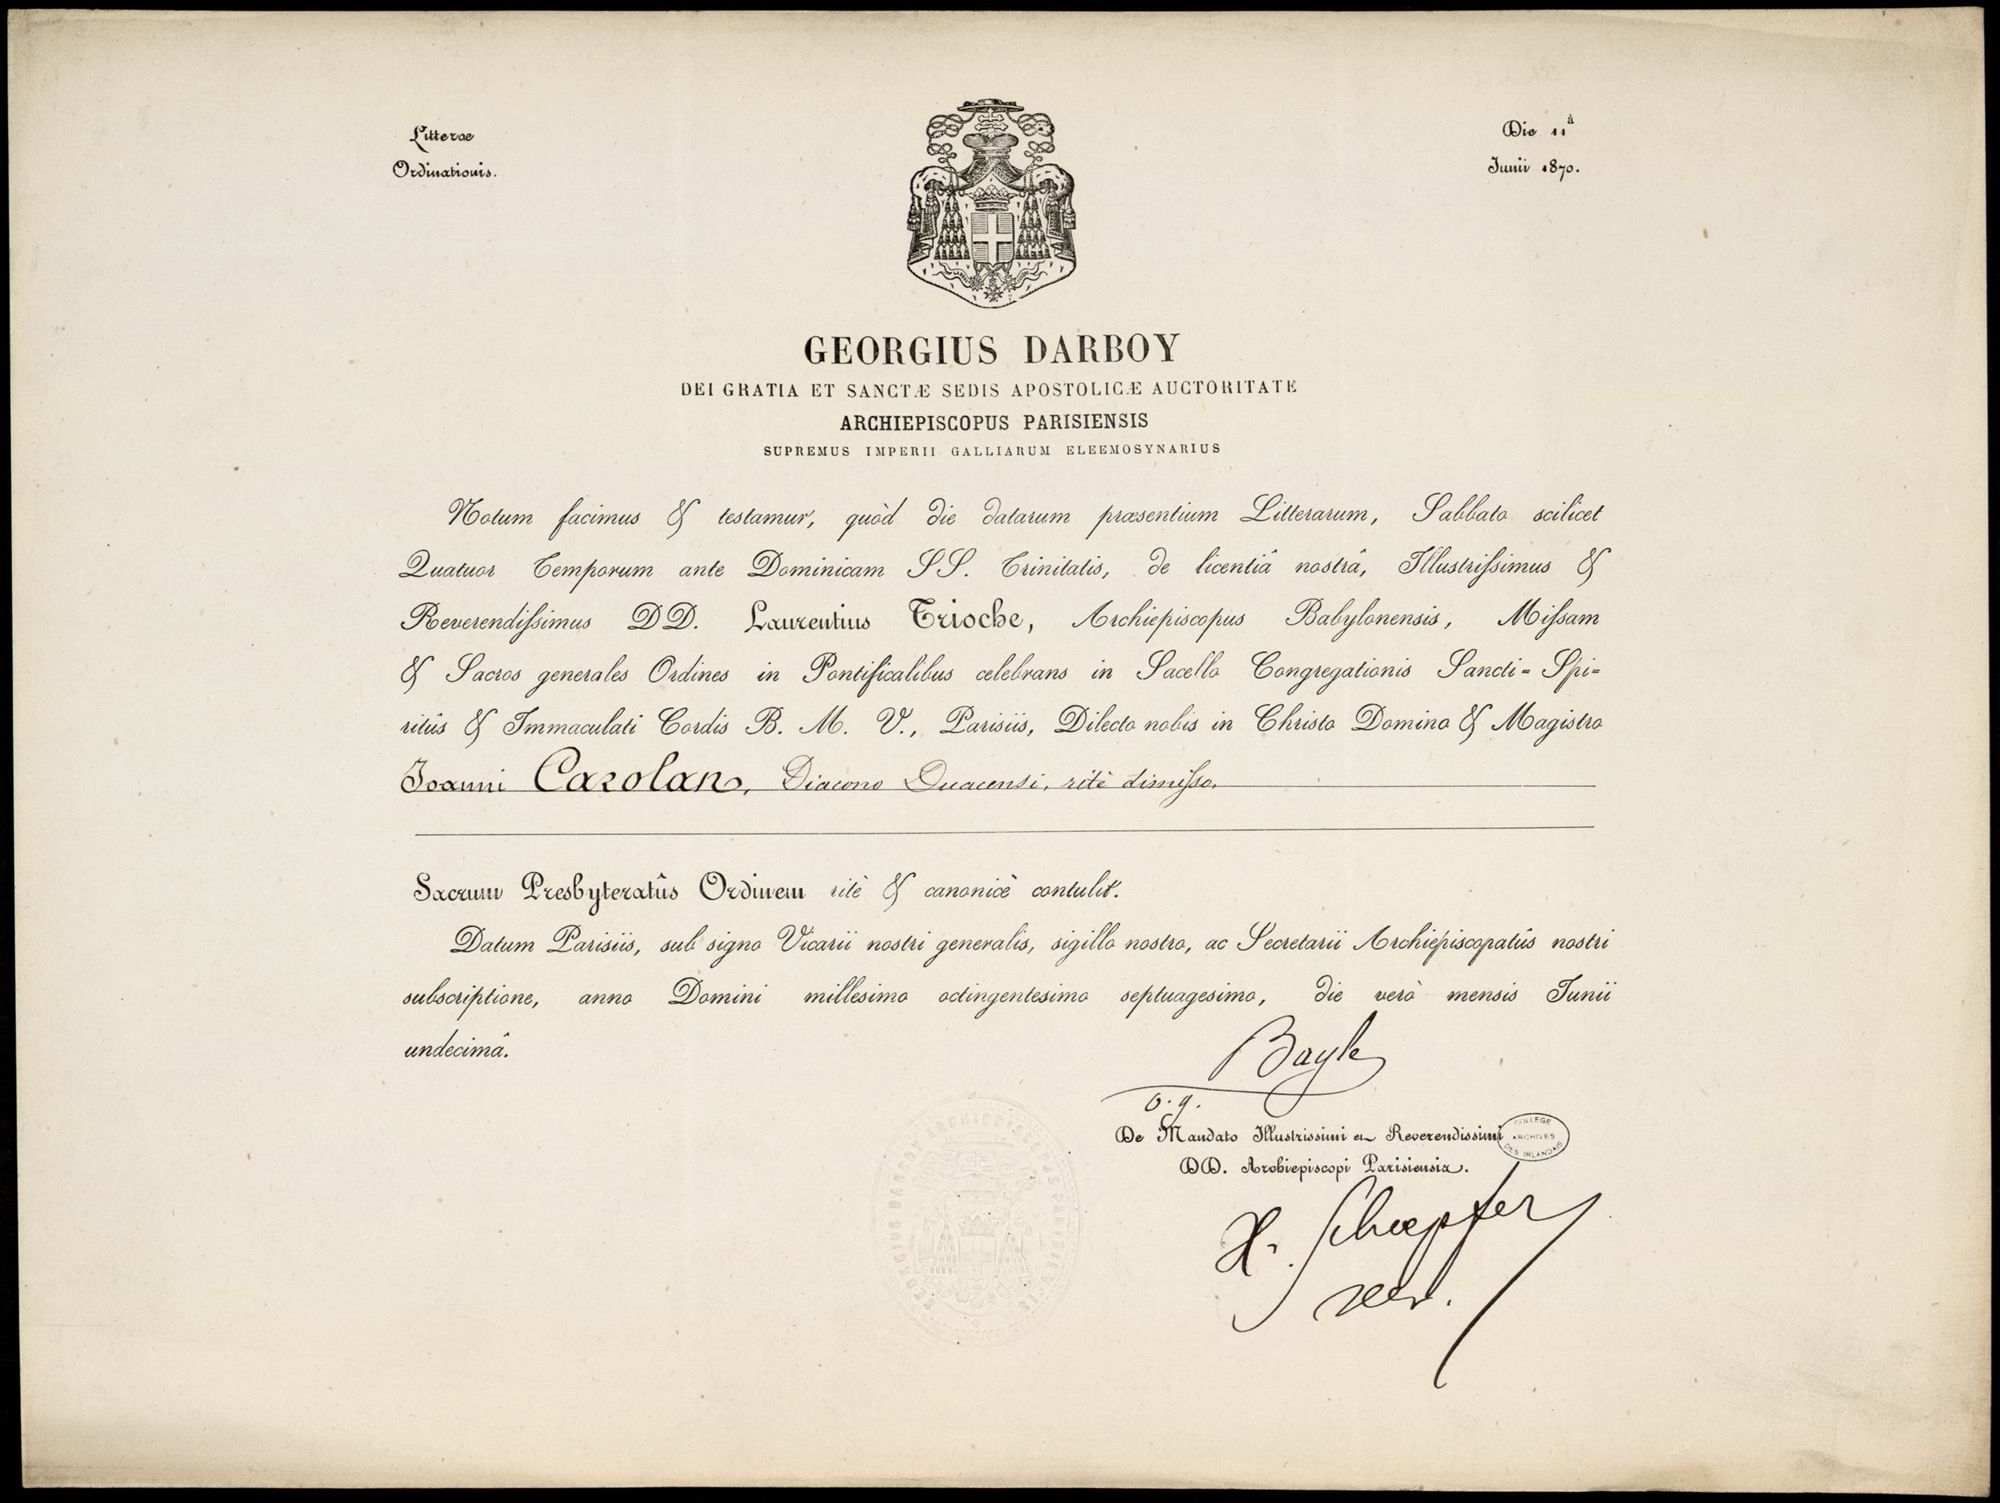 Litterae
Ordinationis.
Die 11ª
Junii 1870.
GEORGIUS DARBOY
DEI GRATIA ET SANCTÆ SEDIS APOSTOLICÆ AUCTORITATE
ARCHIEPISCOPUS PARISIENSIS
SUPREMUS IMPERII GALLIARUM ELEEMOSYNARIUS
Notum facimus & testamur, quòd die datarum præsentium Litterarum, Sabbato scilicet
Quatuor Temporum ante Dominicam SS. Trinitatis, de licentiâ nostrâ, Illustrissimus &
Reverendissimus DD. Laurentius Trioche, Archiepiscopus Babylonensis, Missam
& Sacros generales Ordines in Pontificalibus celebrans in Sacello Congregationis Sancti-Spi-
ritûs & Immaculati Cordis B. M. V., Parisiis, Dilecto nobis in Christo Domino & Magistro
Joanni Carolan, Diacono Duacensi, ritè dimisso,
Sacrum Presbyteratûs Ordinem ritè & canonicè contulit.
Datum Parisiis, sub signo Vicarii nostri generalis, sigillo nostro, ac Secretarii Archiepiscopatûs nostri
subscriptione, anno Domini millesimo octingentesimo septuagesimo, die verò mensis Junii
undecimâ.
Bayle
v. g.
De Mandato Illustrissimi et Reverendissimi
DD. Archiepiscopi Parisiensis.
COLLEGE
ARCHIVES
DES IRLANDAIS
H. Schoepfer
GEORGIUS DARBOY ARCHIEPISCOPUS PARISIENSIS